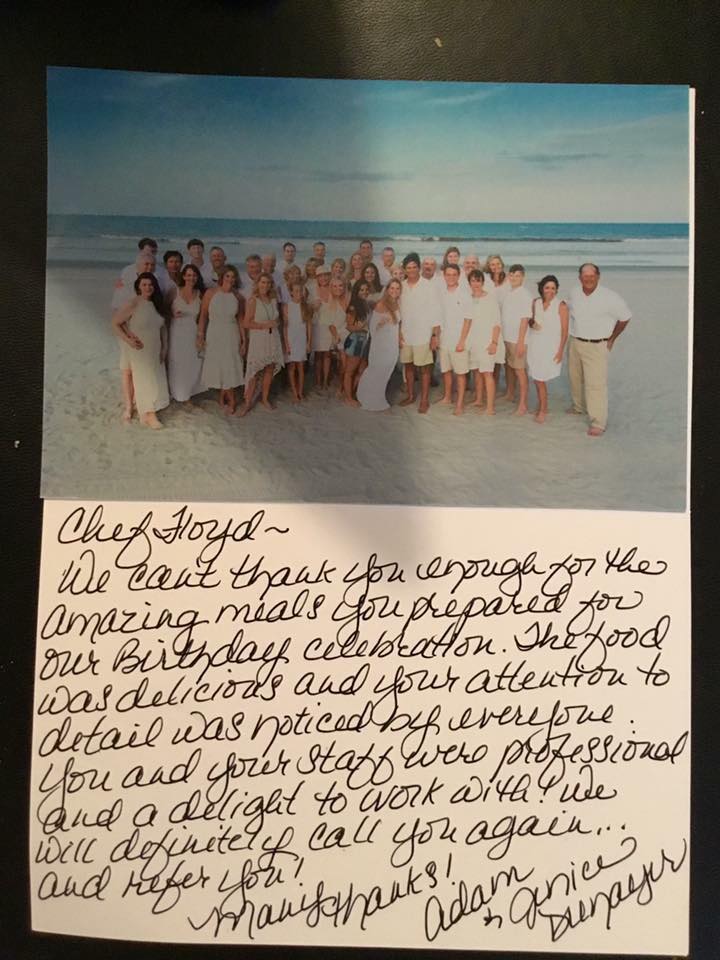 Chef Floyd ~
We can't thank you enough for the
amazing meals you prepared for
our Birthday celebration. The food
was delicious and your attention to
detail was noticed by everyone.
You and your staff were professional
and a delight to work with! We
will definitely call you again...
and refer you!
Many thanks!
Adam
& Jenice